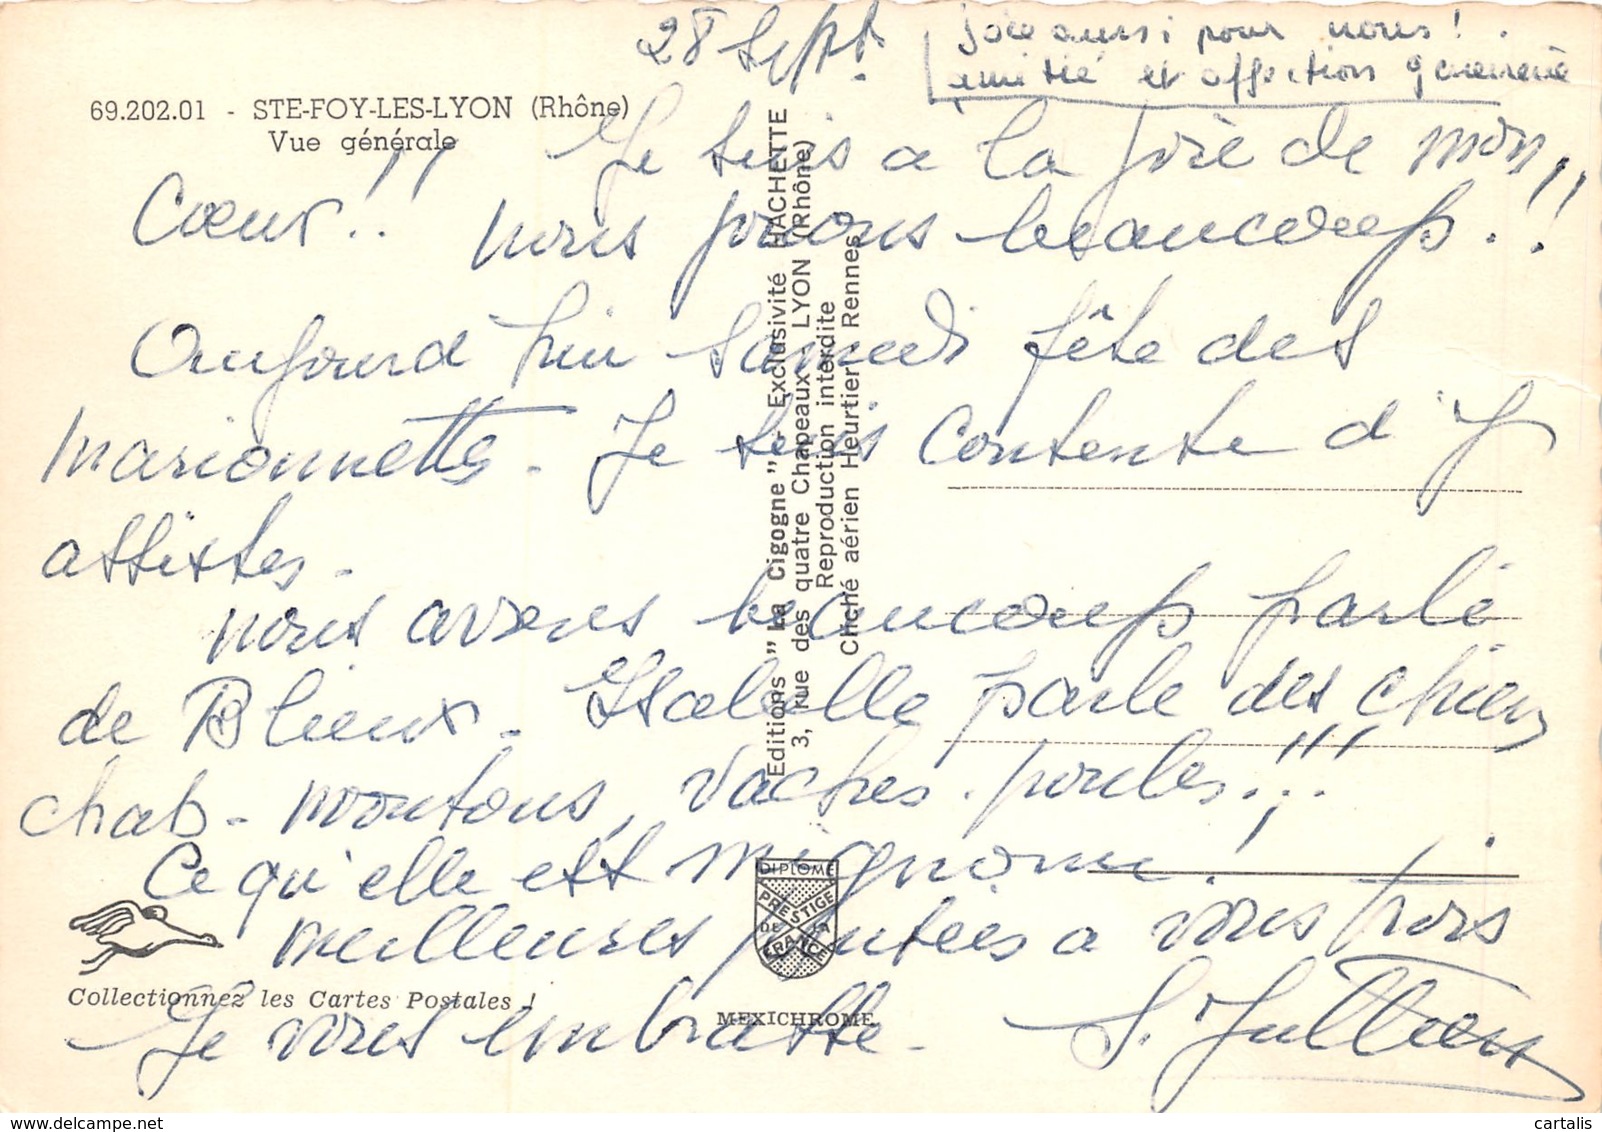 28 Sept.
joie aussi pour nous!
amitié et affection
69.202.01 - STE-FOY-LES-LYON (Rhône)
Vue générale
Je suis a la joie de mon
Cœur!! nous jouons beaucoup!!
Aujourd hui Samedi fête des
marionnettes. Je suis contente d'y
assister.
nous avons beaucoup parlé
de Blieux. Isabelle parle des chiens
chats - moutons, vaches. poules!!!
Ce qu'elle est mignonne!
meilleures pensées a vous trois
Je vous embrasse.
Editions "La Cigogne" - Exclusivité HACHETTE
3, rue des quatre Chapeaux - LYON (Rhône)
Reproduction interdite
Cliché aérien Heurtier Rennes
DIPLOME
PRESTIGE
DE LA
FRANCE
Collectionnez les Cartes Postales !
MEXICHROME
cartalis